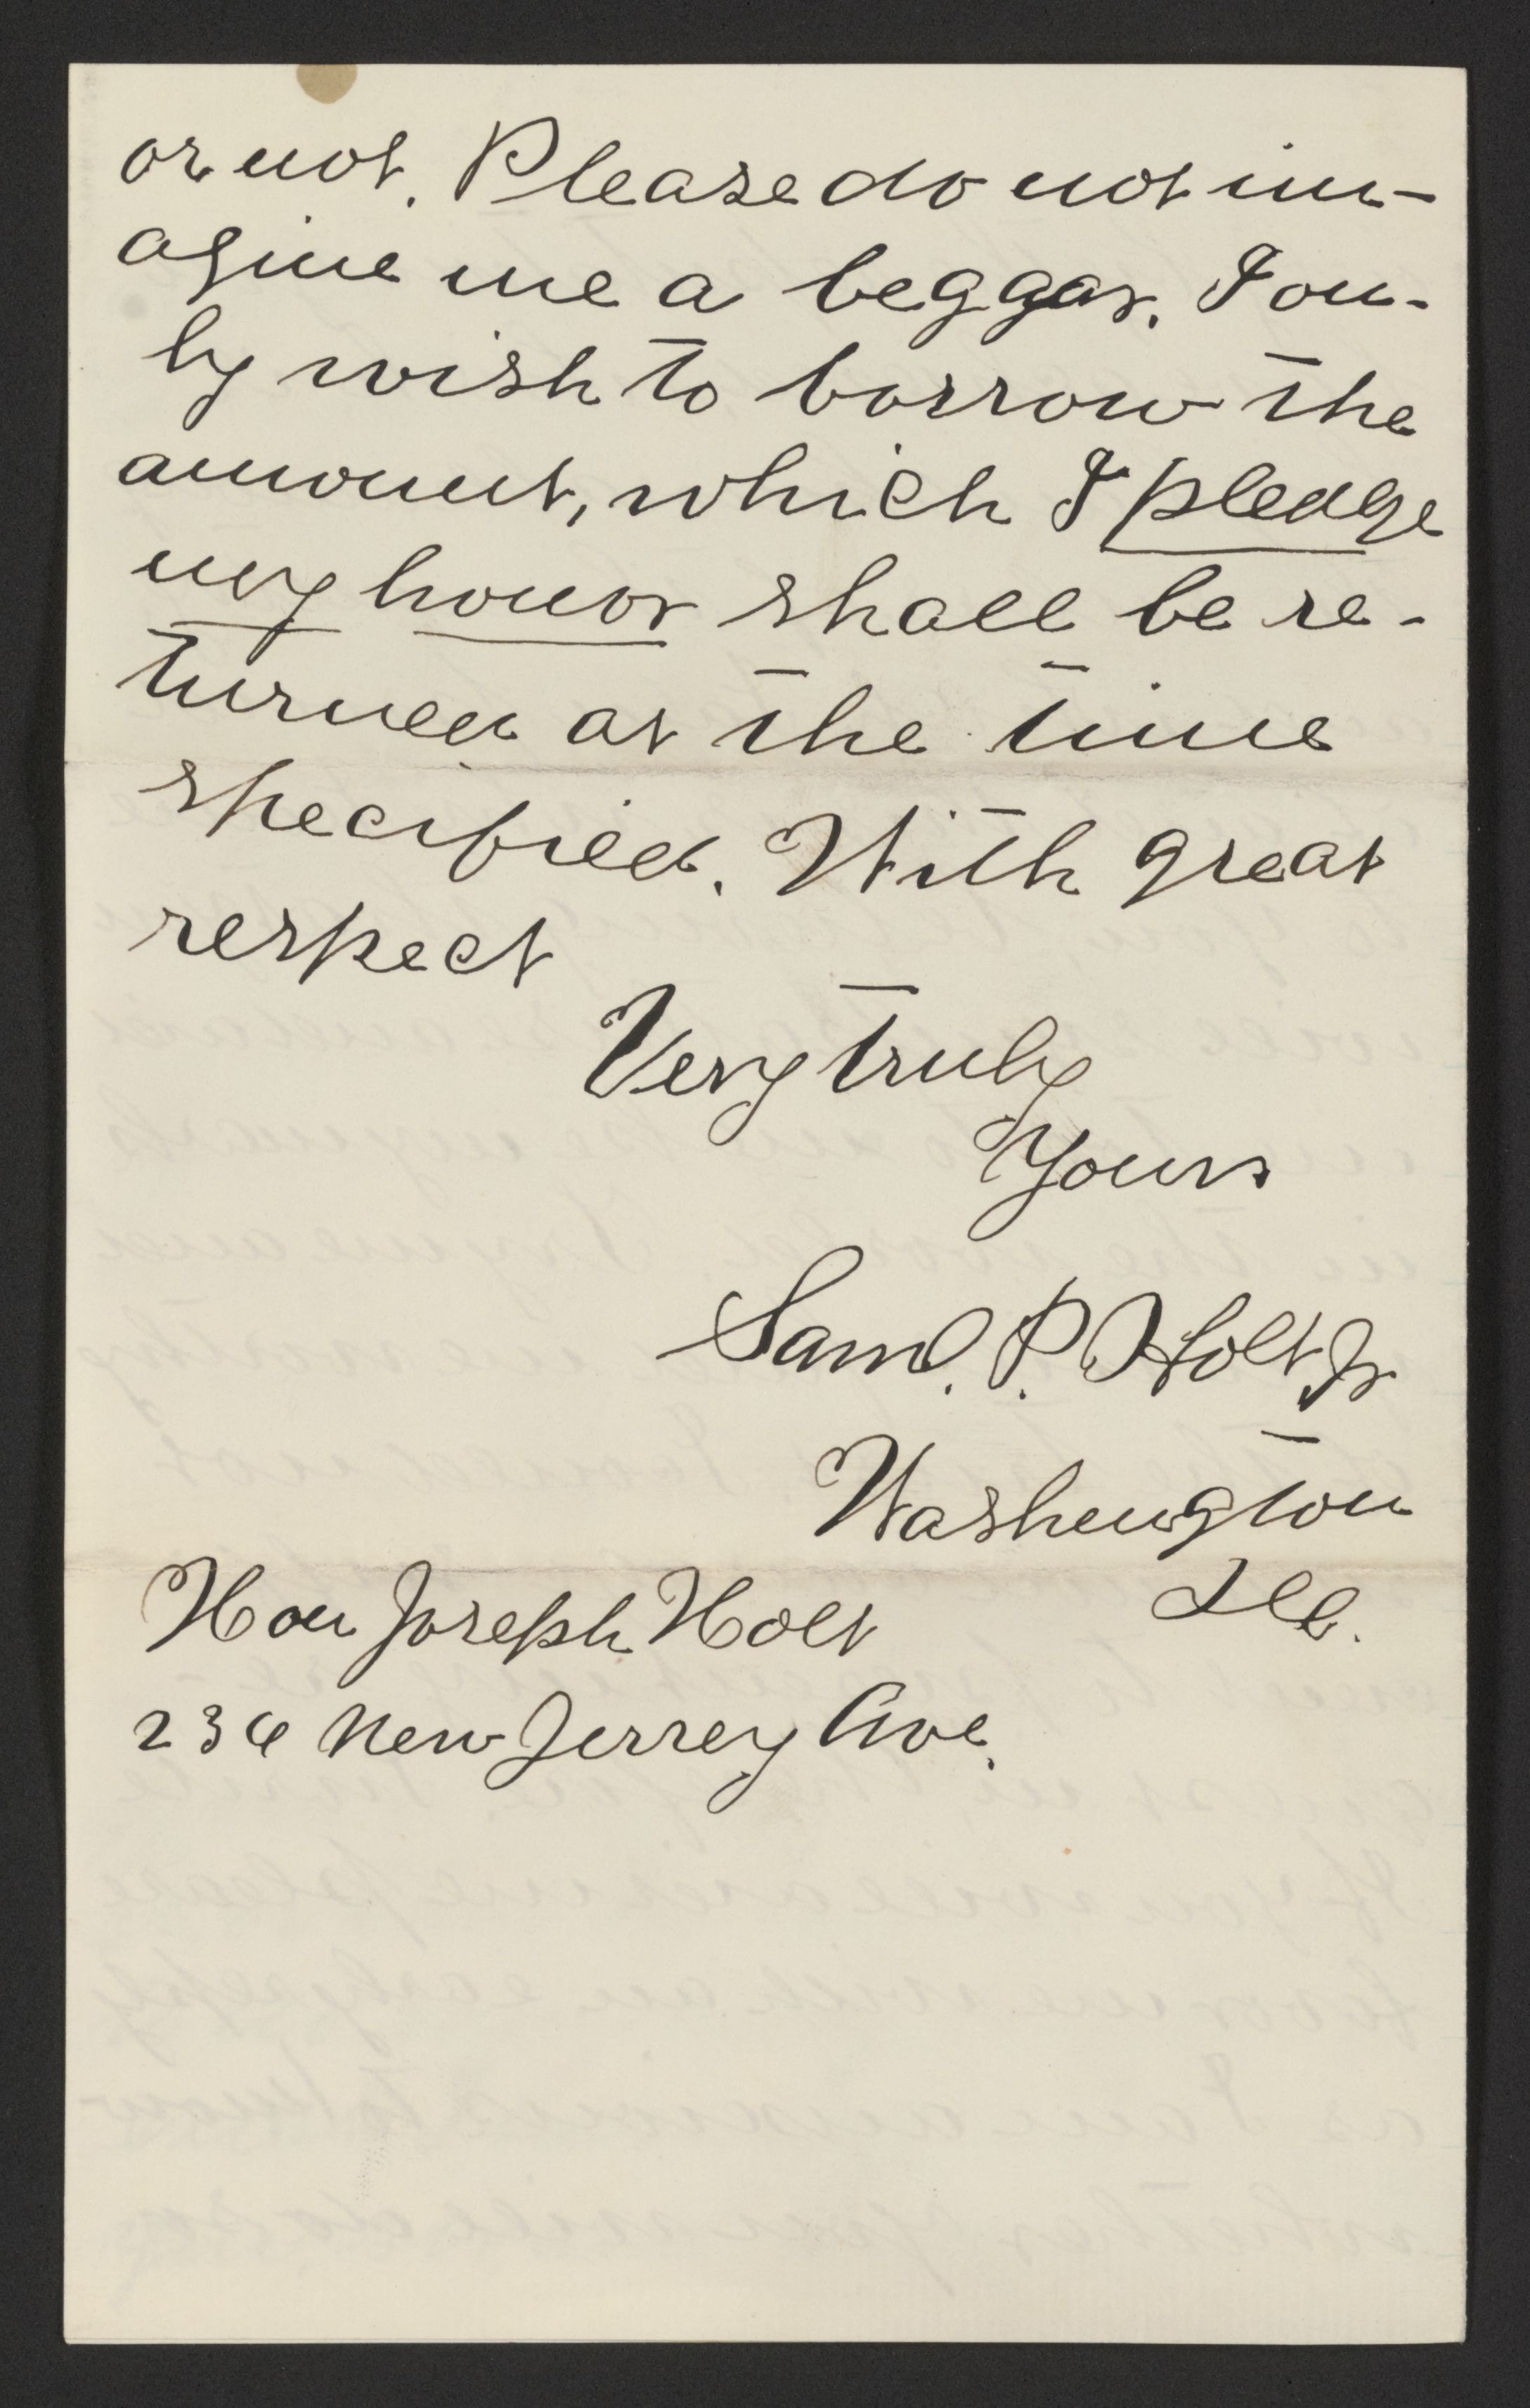 or not. Please do not im-
agine me a beggar. I on-
ly wish to borrow the
amount, which I pledge
my honor shall be re-
turned at the time
specified. With great
respect
Very truly
Yours
Saml. P. Holt Jr
Washington
Ill.
Hon Joseph Holt
236 New Jersey Ave.